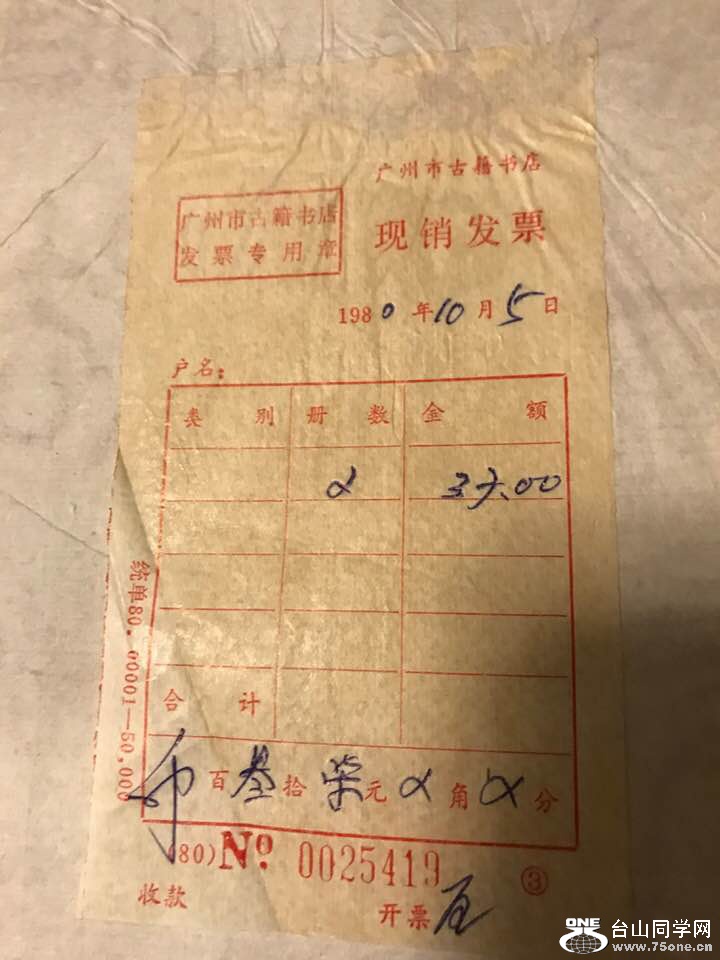 广州市古籍书店
现销发票
广州市古籍书店
发票专用章
1980年10月5日
户名：
类别 册数 金额
2 37.00
合计
币 百叁拾柒元 角 分
(80) Nº 0025419
③
收款 开票
统单80.00001—50,000
ONE 台山同学网
www.75one.cn